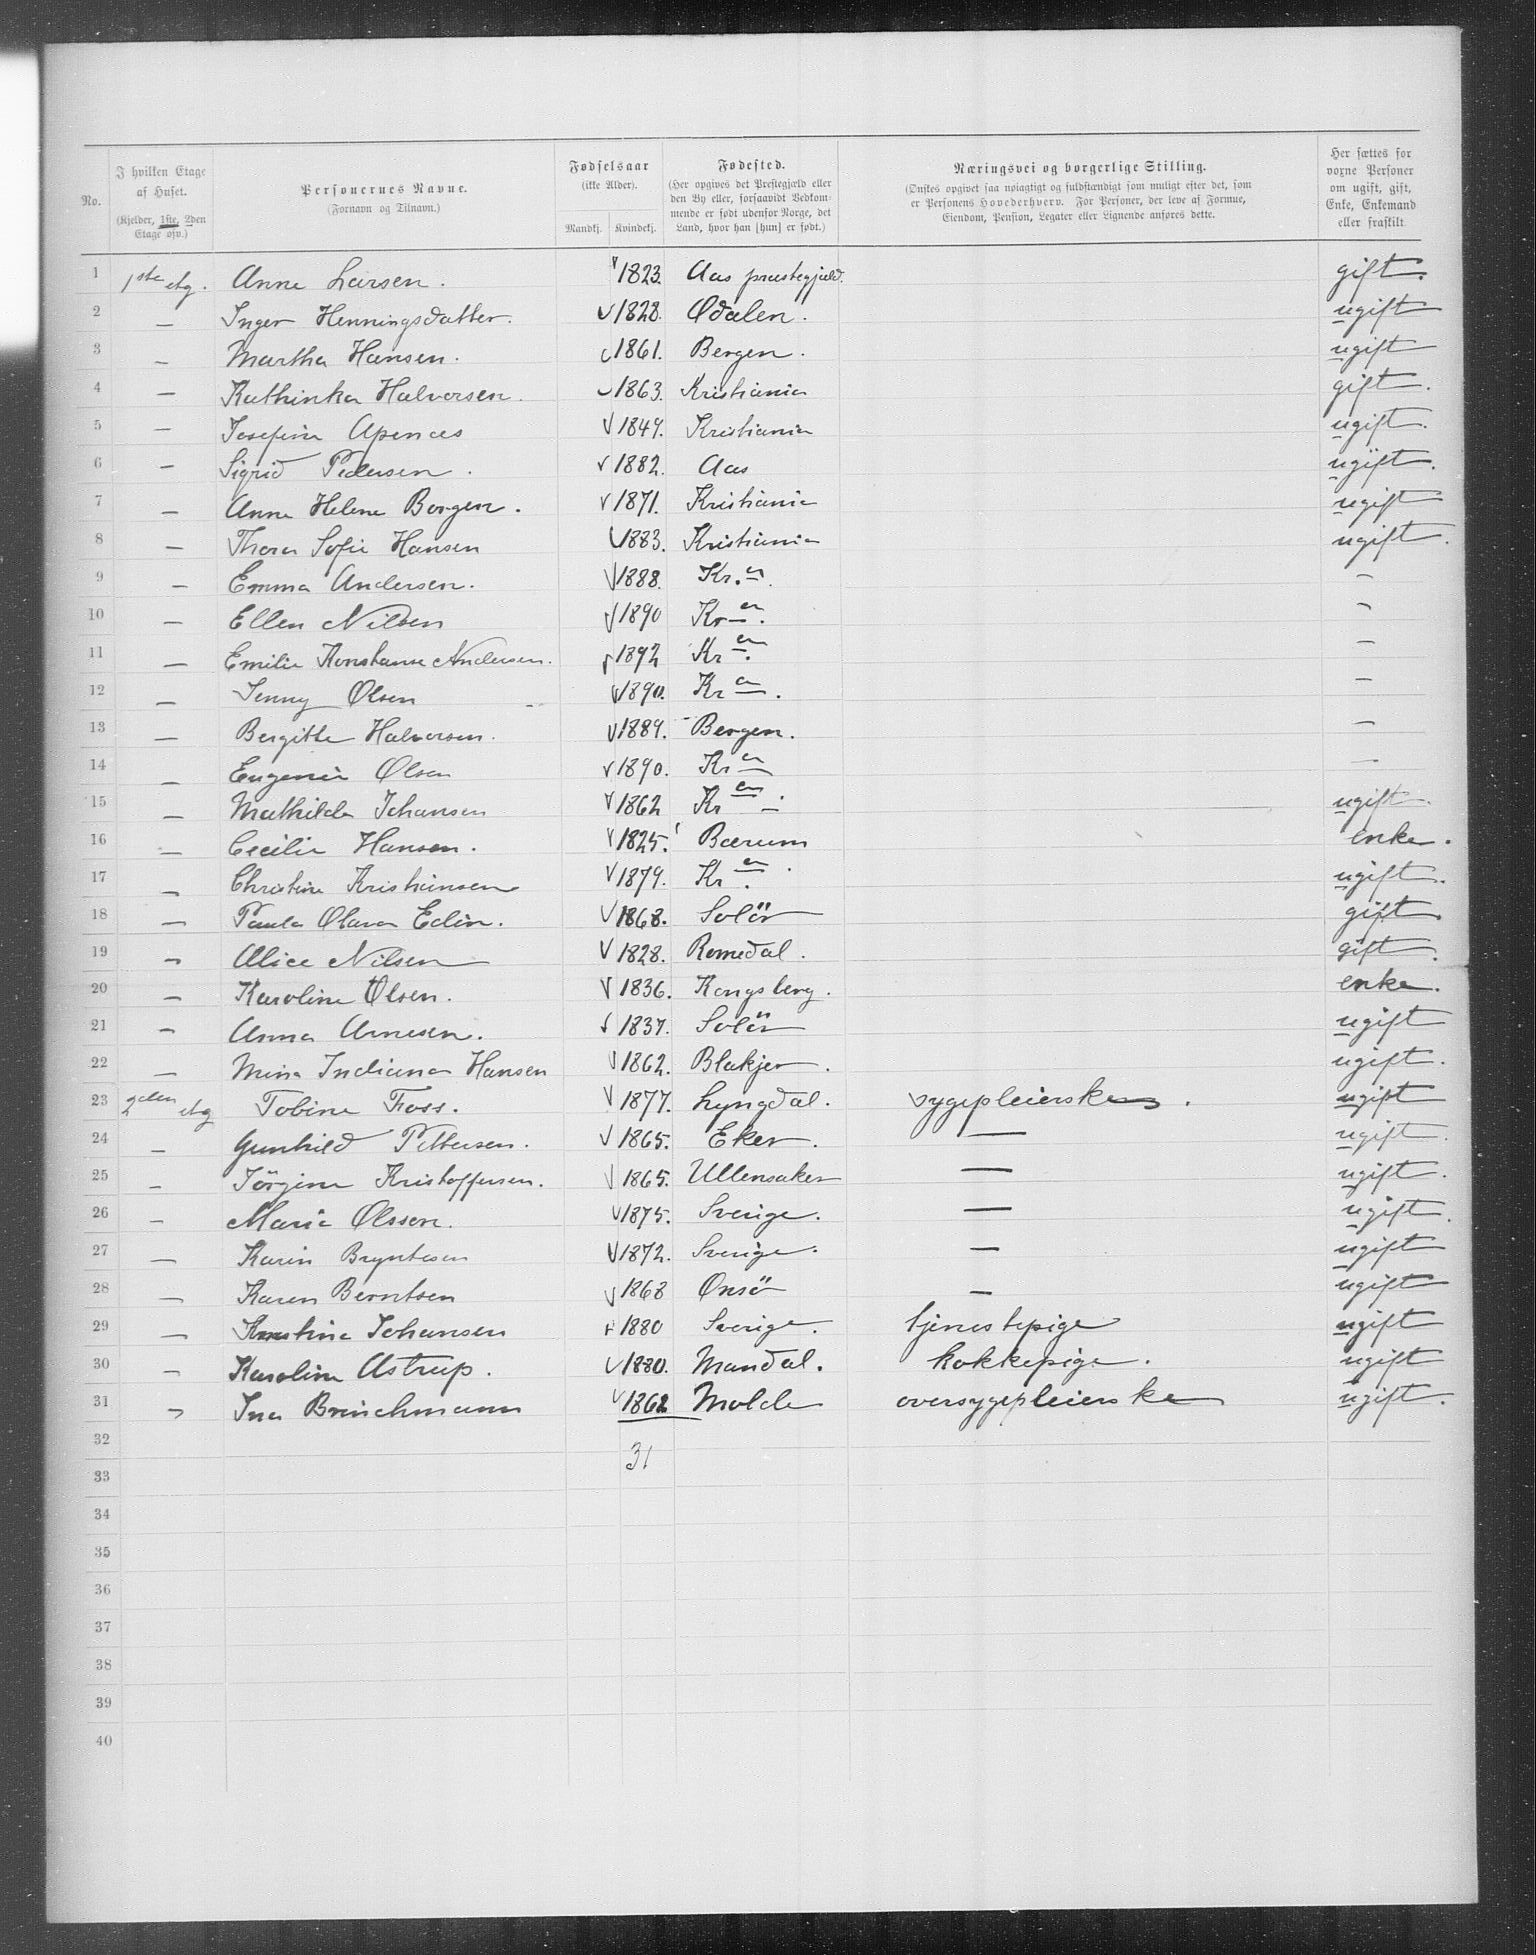 No.
I hvilken Etage af Huset. (Kjelder, 1ste, 2den Etage osv.)
Personernes Navne. (Fornavn og Tilnavn.)
Fødselsaar (ikke Alder). Mandkj. Kvindekj.
Fødested. (Her opgives det Prestegjæld eller den By eller, forsaavidt Vedkommende er født udenfor Norge, det Land, hvor han [hun] er født.)
Næringsvei og borgerlige Stilling. (Ønskes opgivet saa nøiagtigt og fuldstændigt som muligt efter det, som er Personens Hovederhverv. For Personer, der leve af Formue, Eiendom, Pension, Legater eller Lignende anføres dette.
Her sættes for voxne Personer om ugift, gift, Enke, Enkemand eller fraskilt.
1 1ste etg. Anne Larsen. 1823. Aas præstegjæld. gift.
2 — Inger Henningsdatter. 1828. Odalen. ugift
3 — Martha Hansen. 1861. Bergen. ugift
4 — Kathinka Halvorsen. 1863. Kristiania gift.
5 — Josefine Apenæs 1849. Kristiania ugift.
6 — Sigrid Pedersen. 1882. Aas ugift.
7 — Anne Helene Borgen. 1871. Kristiania ugift
8 — Thora Sofie Hansen 1883. Kristiania ugift.
9 — Emma Andersen. 1888. Kr.a. —
10 — Ellen Nilsen 1890 Kr a. —
11 — Emilie Konstanse Andersen. 1892 Kr a. —
12 — Jenny Olsen 1890. Kr a. —
13 — Bergitte Halvorsen. 1889. Bergen. —
14 — Eugenie Olsen 1890. Kr a —
15 — Mathilde Johansen 1862 Kr a. ugift.
16 — Cecilie Hansen. 1825. Bærum enke.
17 — Christine Kristiansen 1879. Kr a. ugift.
18 — Paula Olava Edin. 1868. Solör gift.
19 — Alice Nilsen 1828. Romedal. gift.
20 — Karoline Olsen. 1836. Kongsberg. enke.
21 — Anna Arnesen. 1837. Solör ugift
22 — Mina Indiana Hansen 1862. Blakjer. ugift.
23 2den etg Tobine Foss. 1877. Lyngdal. sygepleierske. ugift
24 — Gunhild Pettersen. 1865. Eker. — ugift.
25 — Jörgine Kristoffersen. 1865. Ullensaker — ugift.
26 — Marie Olsson. 1875. Sverige. — ugift.
27 — Karin Bryntesen 1872. Sverige. — ugift
28 — Karen Berntsen 1868 Onsö — ugift
29 — Kristine Johansen 1880 Sverige. tjenestepige ugift
30 — Karoline Astrup. 1880. Mandal. kokkepige. ugift
31 — Ina Brinchmann 1862 Molde oversygepleierske ugift.
32
31
33
34
35
36
37
38
39
40